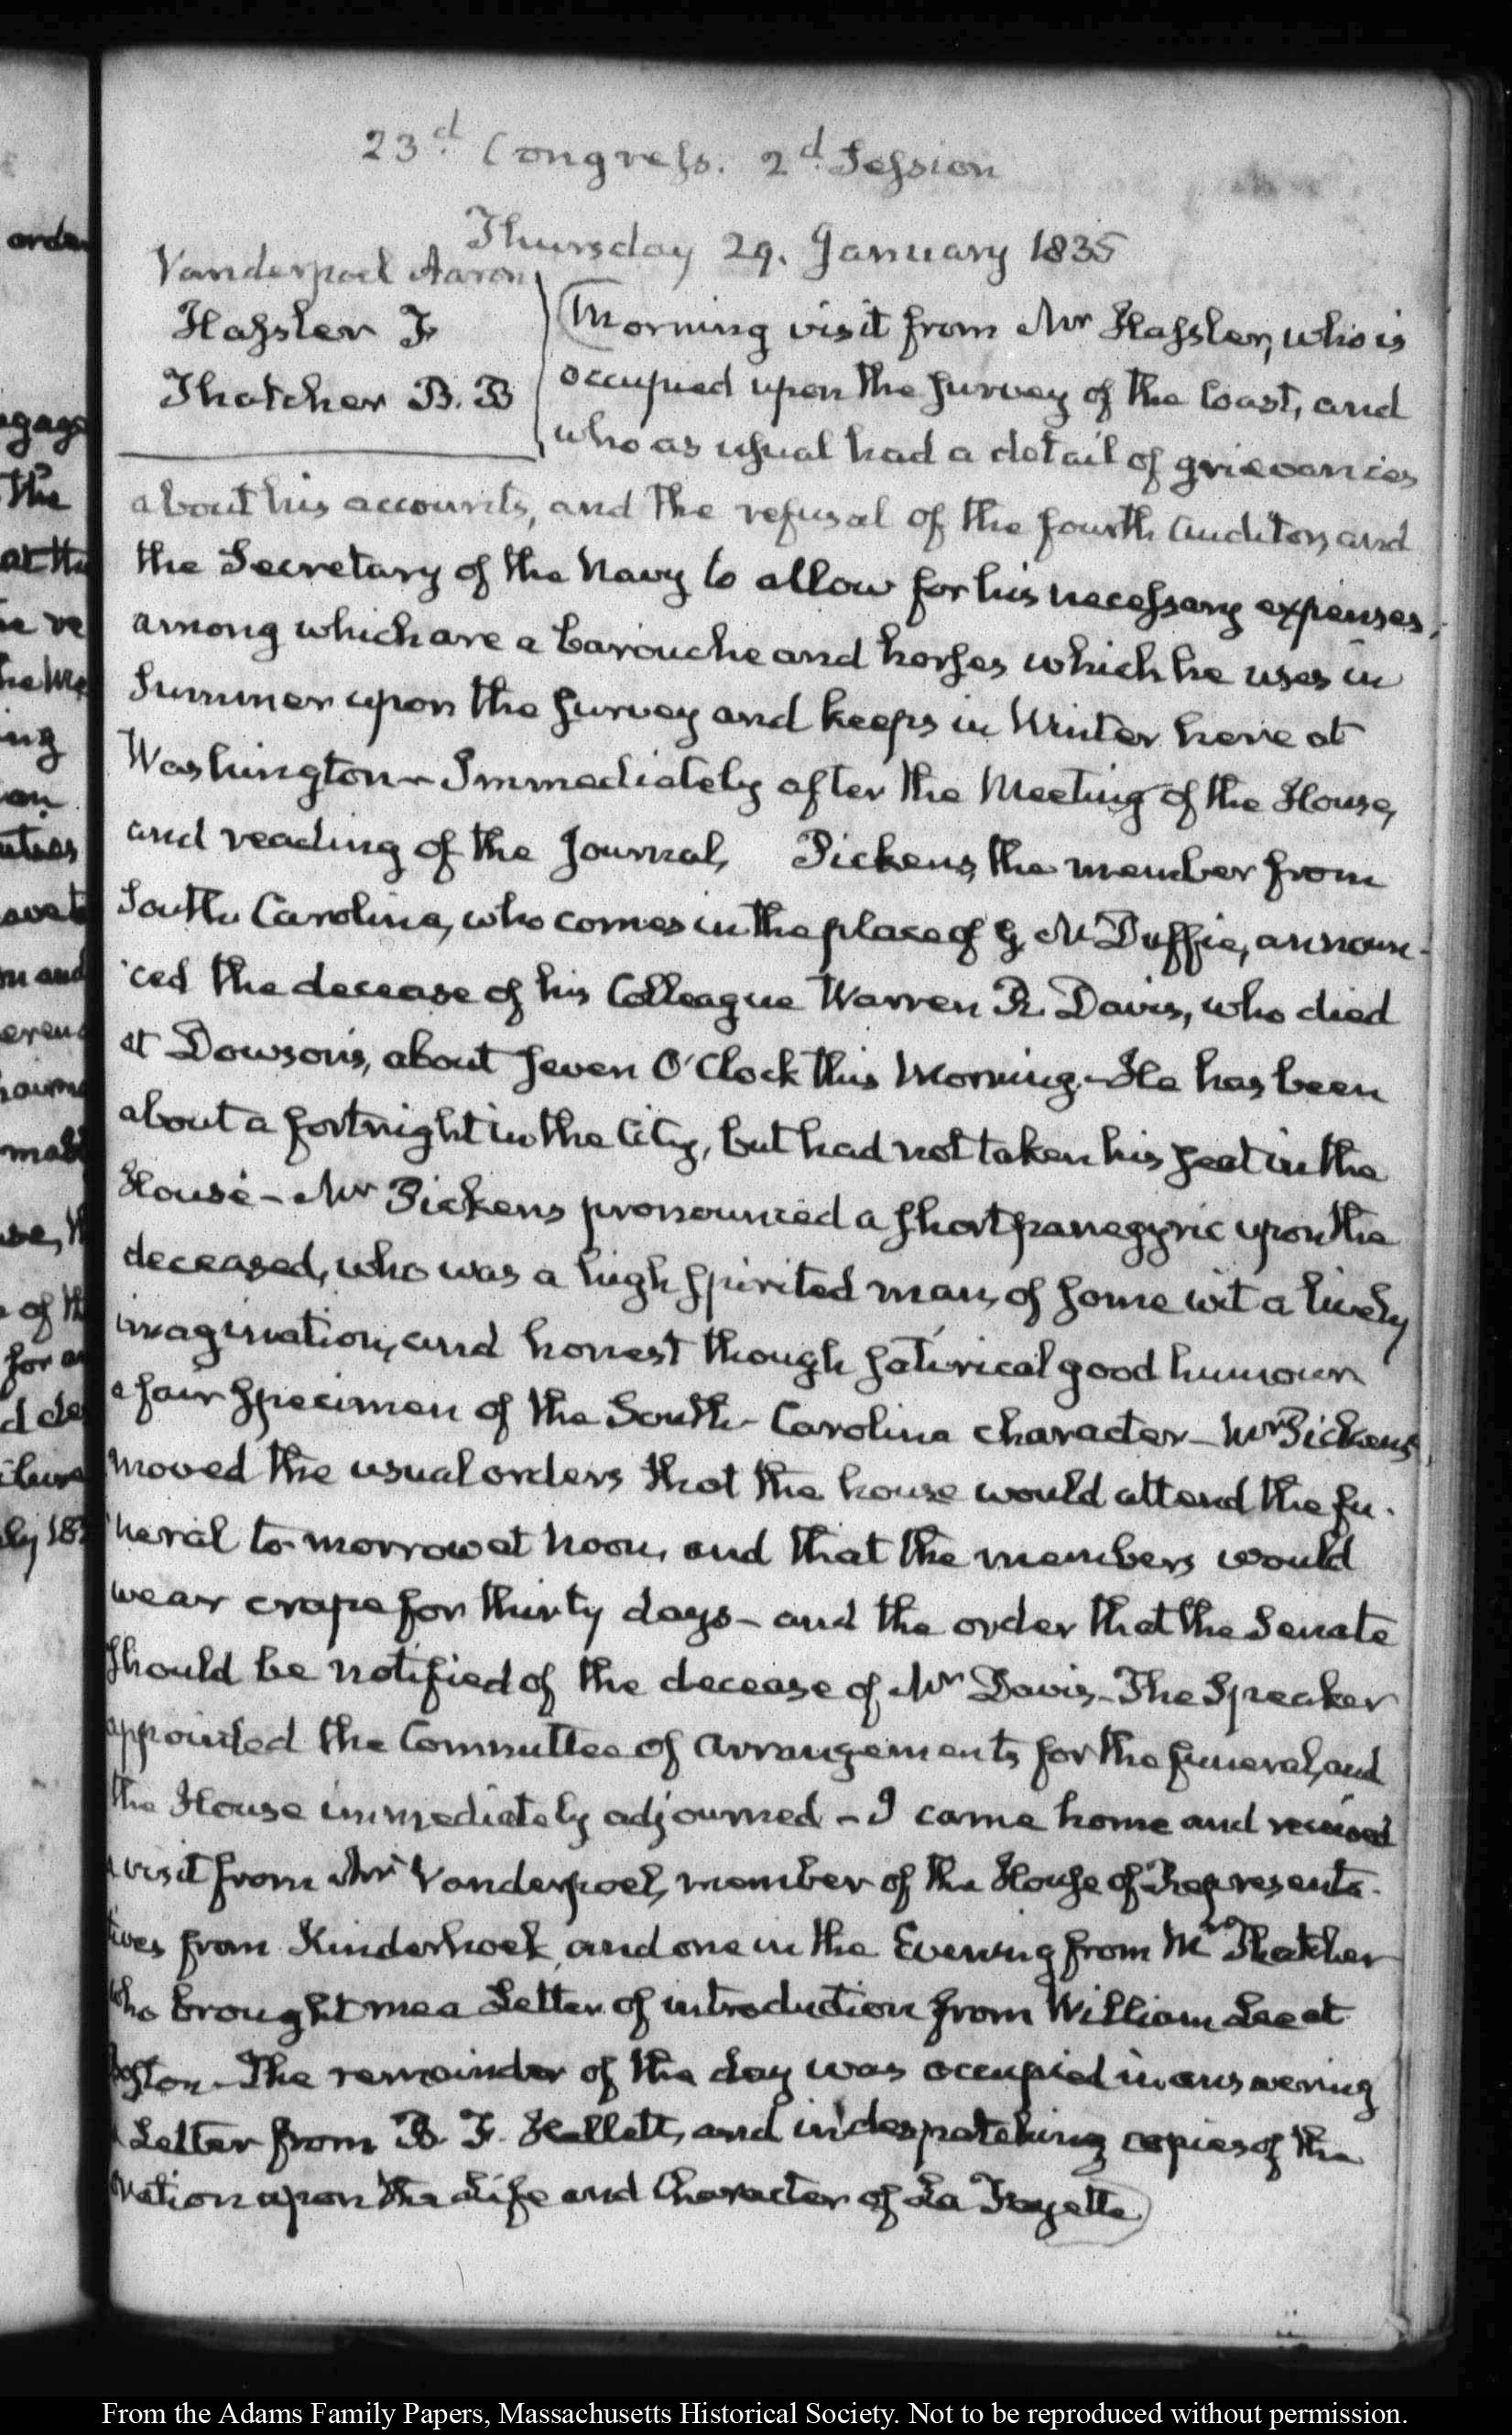 23.d Congress. 2.d Session
Thursday 29. January 1835
Vanderpoel Aaron
Hassler F
Thatcher B. B
Morning visit from Mr Hassler, who is
occupied upon the survey of the Coast, and
who as usual had a detail of grievances
about his accounts, and the refusal of the fourth Auditor, and
the Secretary of the Navy to allow for his necessary expenses,
among which are a barouche and horses which he uses in
Summer upon the survey and keeps in Winter here at
Washington — Immediately after the Meeting of the House,
and reading of the Journal, Pickens, the member from
South Carolina, who comes in the place of G. McDuffie, announ-
ced the decease of his Colleague Warren R. Davis, who died
at Dowson's, about seven O'Clock this Morning — He has been
about a fortnight in the City, but had not taken his seat in the
House — Mr Pickens pronounced a short panegyric upon the
deceased, who was a high spirited man, of some wit a lively
imagination, and honest though satirical good humour
a fair specimen of the South-Carolina character — Mr Pickens
moved the usual orders that the house would attend the fu-
neral to-morrow at noon, and that the members would
wear crape for thirty days — and the order that the Senate
should be notified of the decease of Mr Davis — The Speaker
appointed the Committee of Arrangements for the funeral, and
the House immediately adjourned — I came home and received
a visit from Mr Vanderpoel, member of the House of Representa-
tives from Kinderhook, and one in the Evening from Mr Thatcher
who brought me a Letter of introduction from William Lee at
Boston — The remainder of the day was occupied in answering
a Letter from B. F. Hallett, and in despatching copies of the
Oration upon the Life and Character of La Fayette.
orde
the
at the
he re
ing
an
m and
of th
for a
ly 183
From the Adams Family Papers, Massachusetts Historical Society. Not to be reproduced without permission.